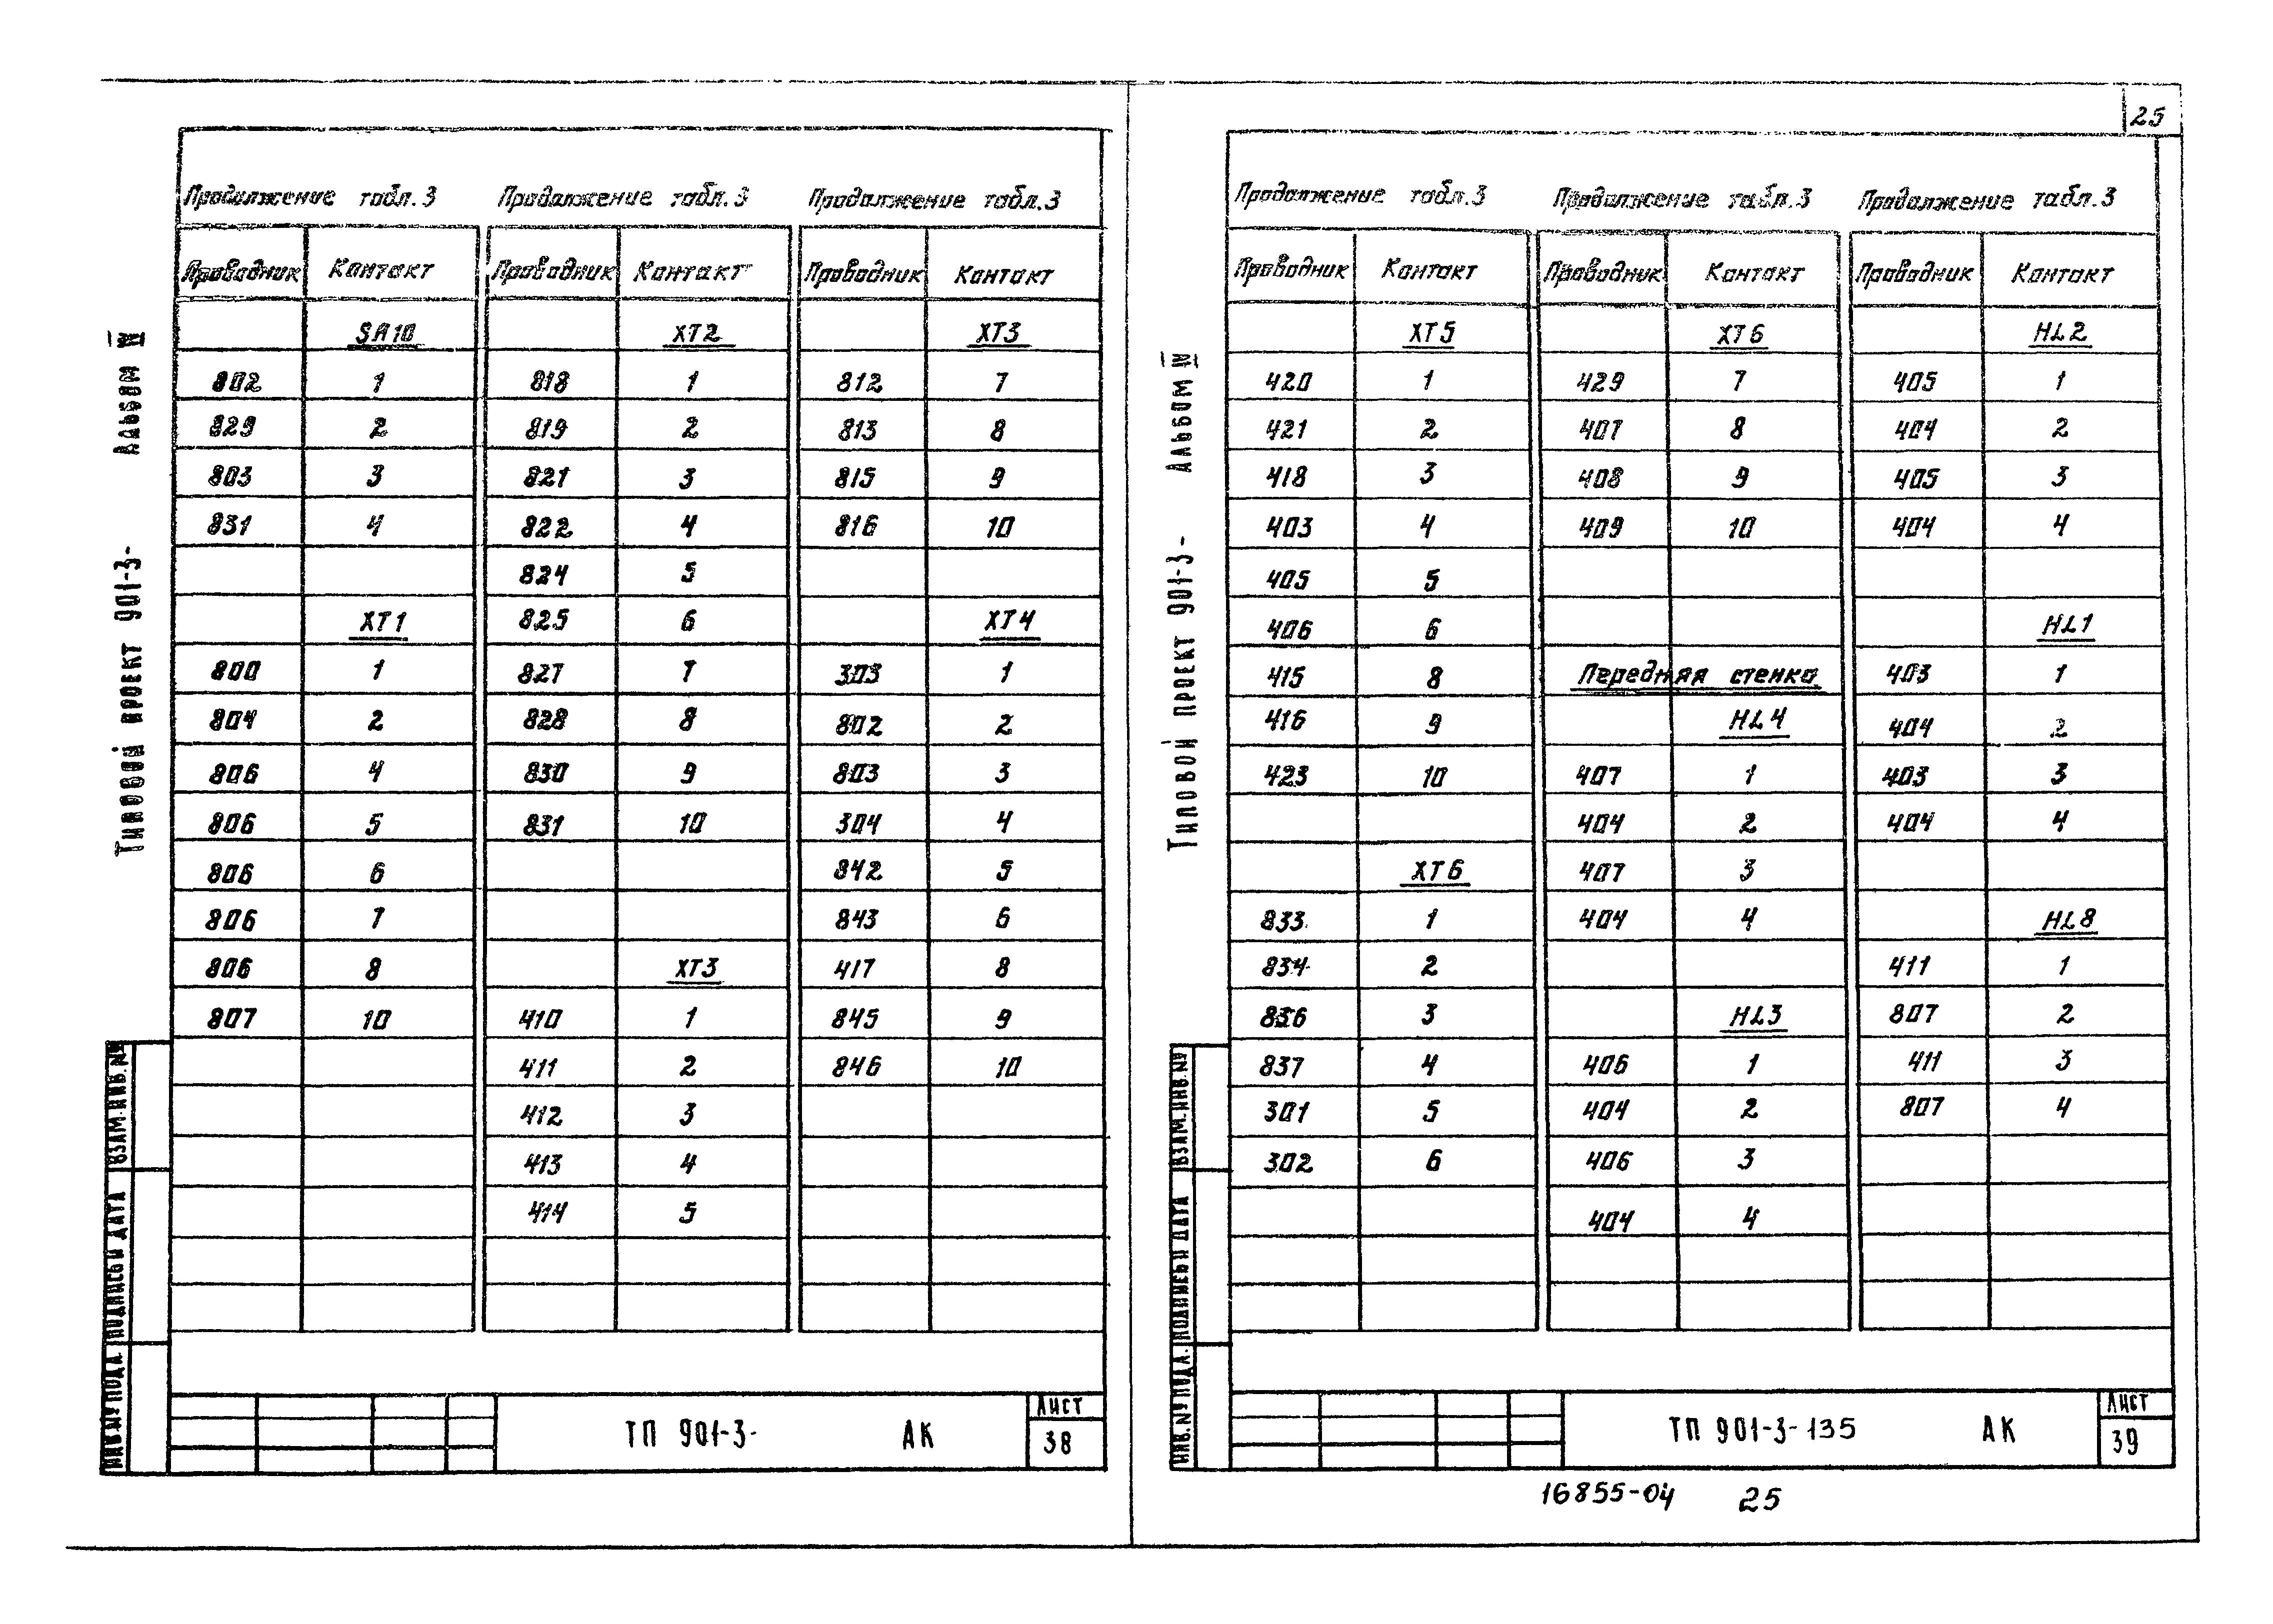 25
Типовой проект 901-3- Альбом IV
Продолжение табл.3 Продолжение табл.3 Продолжение табл.3
Проводник Контакт Проводник Контакт Проводник Контакт
SA10 XT2 XT3
802 1 818 1 812 7
829 2 819 2 813 8
803 3 821 3 815 9
831 4 822 4 816 10
824 5
XT1 825 6 XT4
800 1 827 7 303 1
804 2 828 8 802 2
806 4 830 9 803 3
806 5 831 10 304 4
806 6 842 5
806 7 843 6
806 8 XT3 417 8
807 10 410 1 845 9
411 2 846 10
412 3
413 4
414 5
ИНВ.№ПОДЛ. ПОДПИСЬ И ДАТА ВЗАМ.ИНВ.№
ТП 901-3- АК
Лист
38
Типовой проект 901-3- Альбом IV
Продолжение табл.3 Продолжение табл.3 Продолжение табл.3
Проводник Контакт Проводник Контакт Проводник Контакт
XT5 XT6 HL2
420 1 429 7 405 1
421 2 407 8 404 2
418 3 408 9 405 3
403 4 409 10 404 4
405 5
406 6 HL1
415 8 Передняя стенка 403 1
416 9 HL4 404 2
423 10 407 1 403 3
404 2 404 4
XT6 407 3
833 1 404 4 HL8
834 2 411 1
836 3 HL3 807 2
837 4 406 1 411 3
301 5 404 2 807 4
302 6 406 3
404 4
ИНВ.№ПОДЛ. ПОДПИСЬ И ДАТА ВЗАМ.ИНВ.№
ТП 901-3-135 АК
Лист
39
16855-04 25